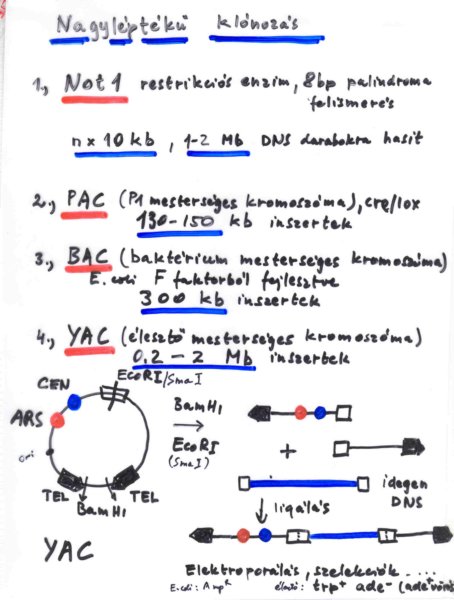 Nagyléptékű klónozás
1., Not1 restrikciós enzim, 8bp palindroma
felismerés
n x 10 kb , 1-2 Mb DNS darabokra hasit
2., PAC (P1 mesterséges kromoszóma), cre/lox
130-150 kb inszertek
3., BAC (baktérium mesterséges kromoszóma)
E. coli F faktorból fejlesztve
300 kb inszertek
4., YAC (élesztő mesterséges kromoszóma)
0,2 - 2 Mb inszertek
EcoRI/SmaI
CEN
ARS
ori
TEL
TEL
BamH1
BamH1
EcoRI
(SmaI)
+
idegen
DNS
ligálás
YAC
Elektroporálás, szelekciók ....
E.coli: AmpR élesztő: trp+ ade- (ade+